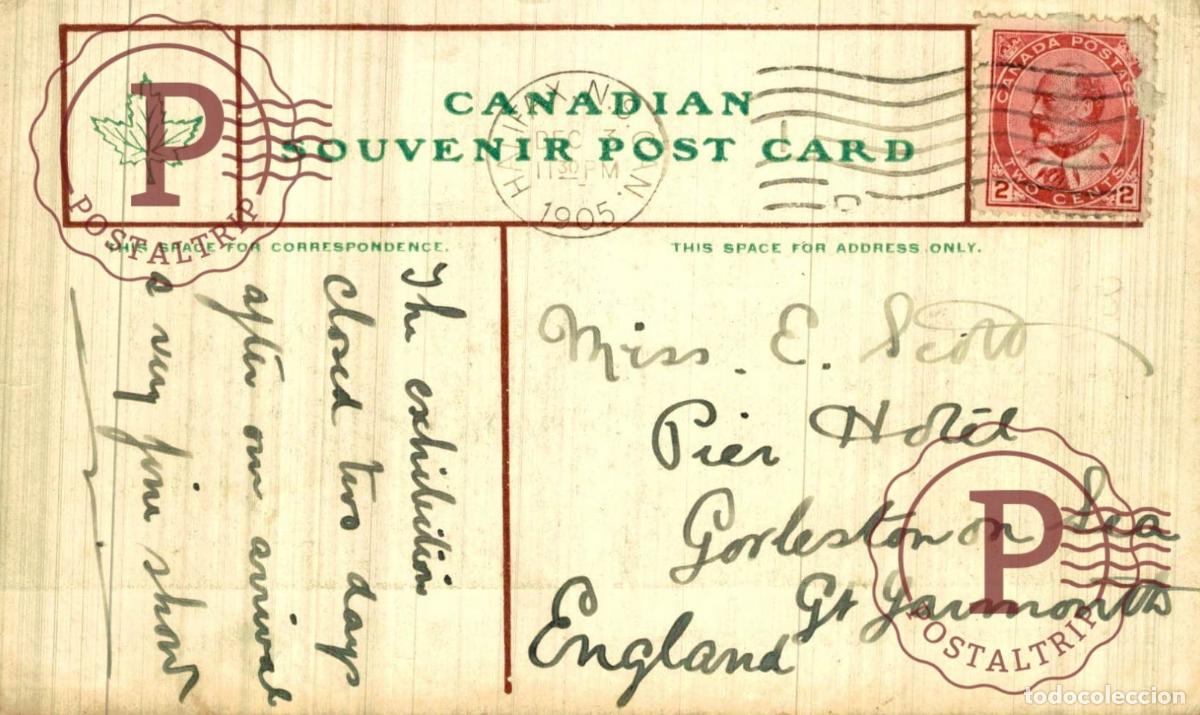 CANADIAN
SOUVENIR POST CARD
HALIFAX, N.S. CAN.
DEC 3
11 30 PM
1905
CANADA POSTAGE
2 TWO CENTS 2
THIS SPACE FOR CORRESPONDENCE.
THIS SPACE FOR ADDRESS ONLY.
The exhibition
closed two days
after our arrival
a very fine show
Miss. E. Scott
Pier Hotel
Gorleston on Sea
Gt Yarmouth
England
P
POSTALTRIP
P
POSTALTRIP
todocoleccion